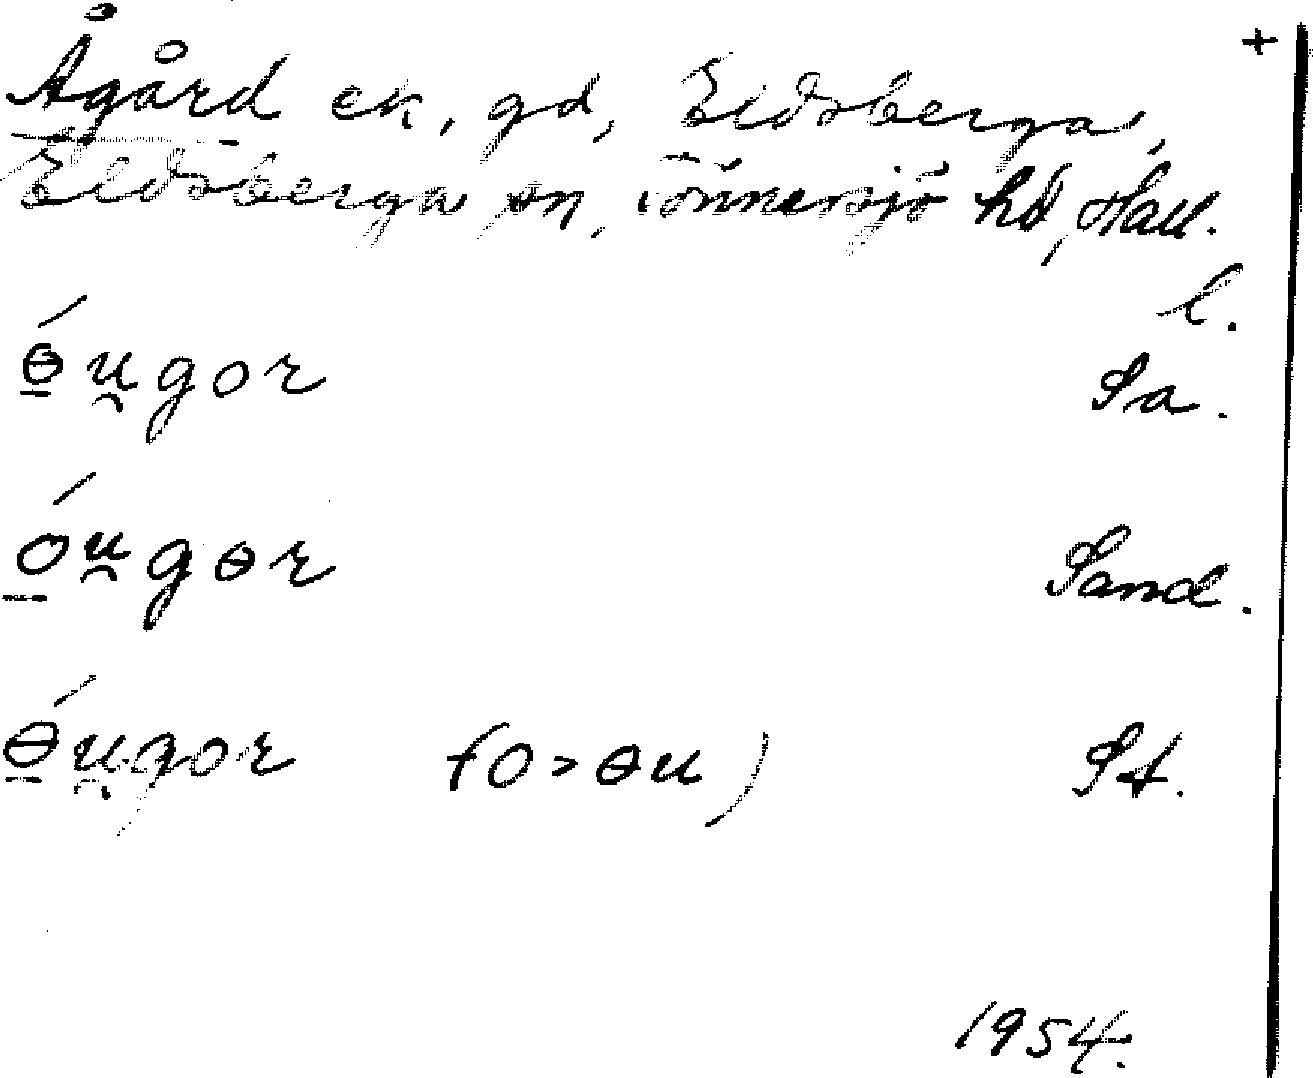 +
Ågård ek, gd, Eldsberga,
Eldsberga sn, Tönnersjö hd, Hall.
l.
ɵ́u̯gor Sa.
óu̯gɵr Sand.
ɵ́u̯gor (o>ɵu) St.
1954.